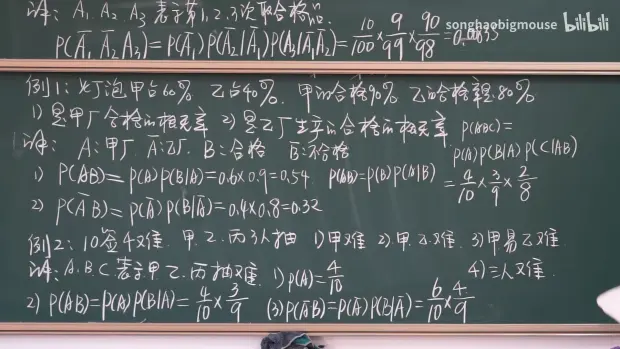 解: A₁, A₂, A₃ 表示第1,2,3次取合格品.
P(Ā₁ Ā₂ A₃)=P(Ā₁)P(Ā₂|Ā₁)P(A₃|Ā₁Ā₂)=10/100×9/99×90/98=
songhaobigmouse bilibili
例1:灯泡甲占60% 乙占40%. 甲的合格90% 乙的合格率80%
1) 是甲厂合格的概率 2) 是乙厂生产的合格的概率
解: A:甲厂. Ā:乙厂. B:合格 B̄:不合格
1) P(AB)=P(A)P(B|A)=0.6×0.9=0.54. P(AB)=P(B)P(A|B)
2) P(ĀB)=P(Ā)P(B|Ā)=0.4×0.8=0.32
P(ABC)=
P(A)P(B|A)P(C|AB)
=4/10×3/9×2/8
例2:10签4难. 甲.乙.丙3人抽 1)甲难 2)甲.乙难. 3)甲易乙难.
4)三人难.
解:A.B.C表示甲乙.丙抽难. 1)P(A)=4/10
2) P(AB)=P(A)P(B|A)=4/10×3/9 (3)P(ĀB)=P(Ā)P(B|Ā)=6/10×4/9